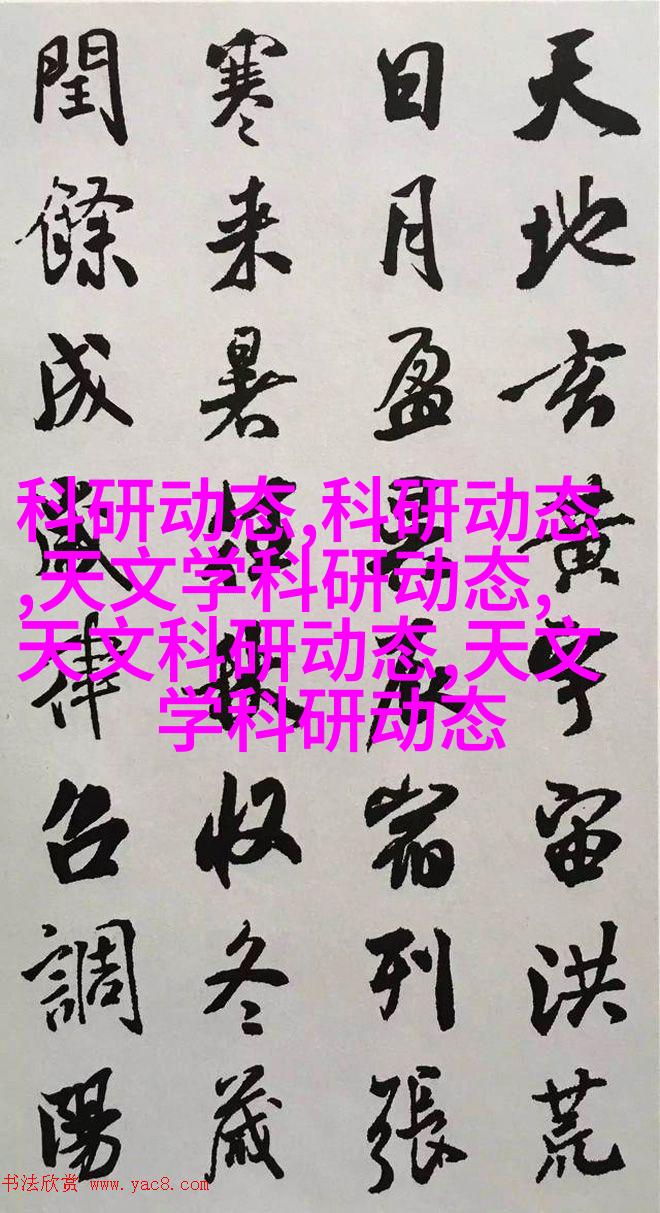 天地玄黄宇宙洪荒
日月盈昃辰宿列張
寒来暑往秋收冬蔵
閏餘成歲律召調陽
科研动态,科研动态
,天文学科研动态,
天文科研动态,天文
学科研动态
书法欣赏 www.yac8.com